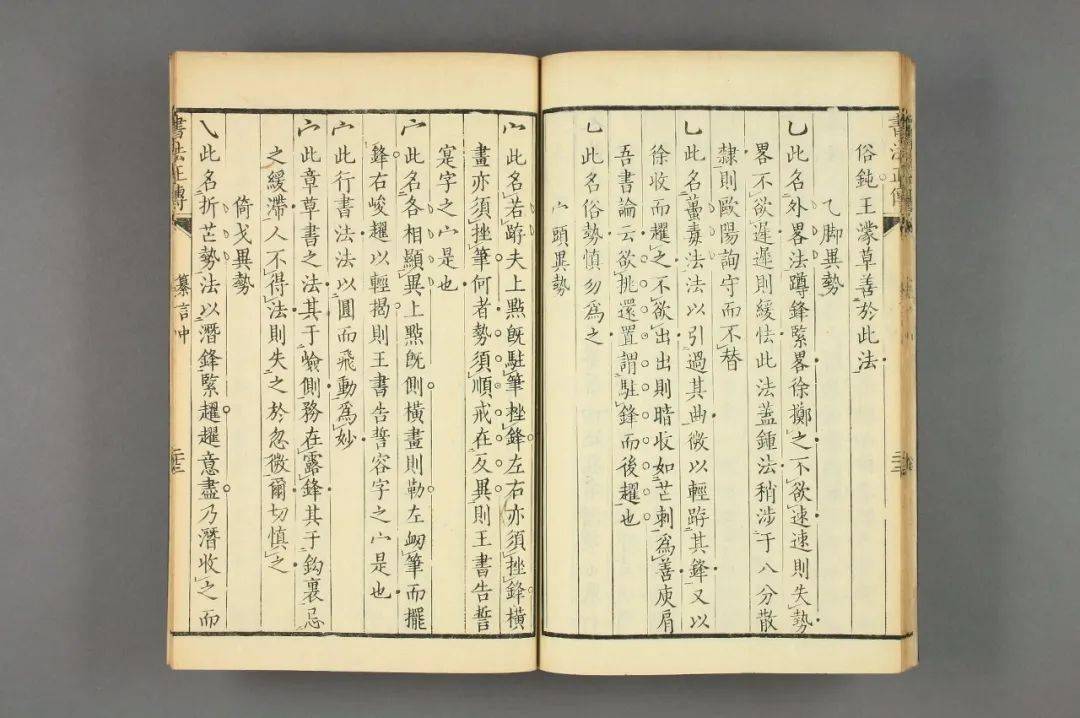 俗鈍王濛草善於此法
乙脚異勢
乙此名外畧法蹲鋒緊畧徐擲之不欲速速則失勢
畧不欲遲遲則緩怯此法蓋鍾法稍涉于八分散
隸則歐陽詢守而不替
乚此名蠆毒法法以引過其曲微以輕跱其鋒又以
徐收而趯之不欲出出則暗收如芒刺爲善庾肩
吾書論云欲挑還置謂駐鋒而後趯也
乚此名俗勢慎勿爲之
宀頭異勢
宀此名若跱夫上㸃旣駐筆挫鋒左右亦須挫鋒橫
畫亦須挫筆何者勢須順戒在反異則王書告誓
寔字之宀是也
宀此名各相顯異上㸃旣側橫畫則勒左㓨筆而擺
鋒右峻趯以輕揭則王書告誓容字之宀是也
宀此行書法法以圓而飛動爲妙
宀此章草書之法其于嶮側務在露鋒其于鈎裹忌
之緩滯人不得法則失之於忽微爾切慎之
倚戈異勢
㇂此名折芒勢法以潛鋒緊趯趯意盡乃潛收之而
書法正傳
纂言中
二十三